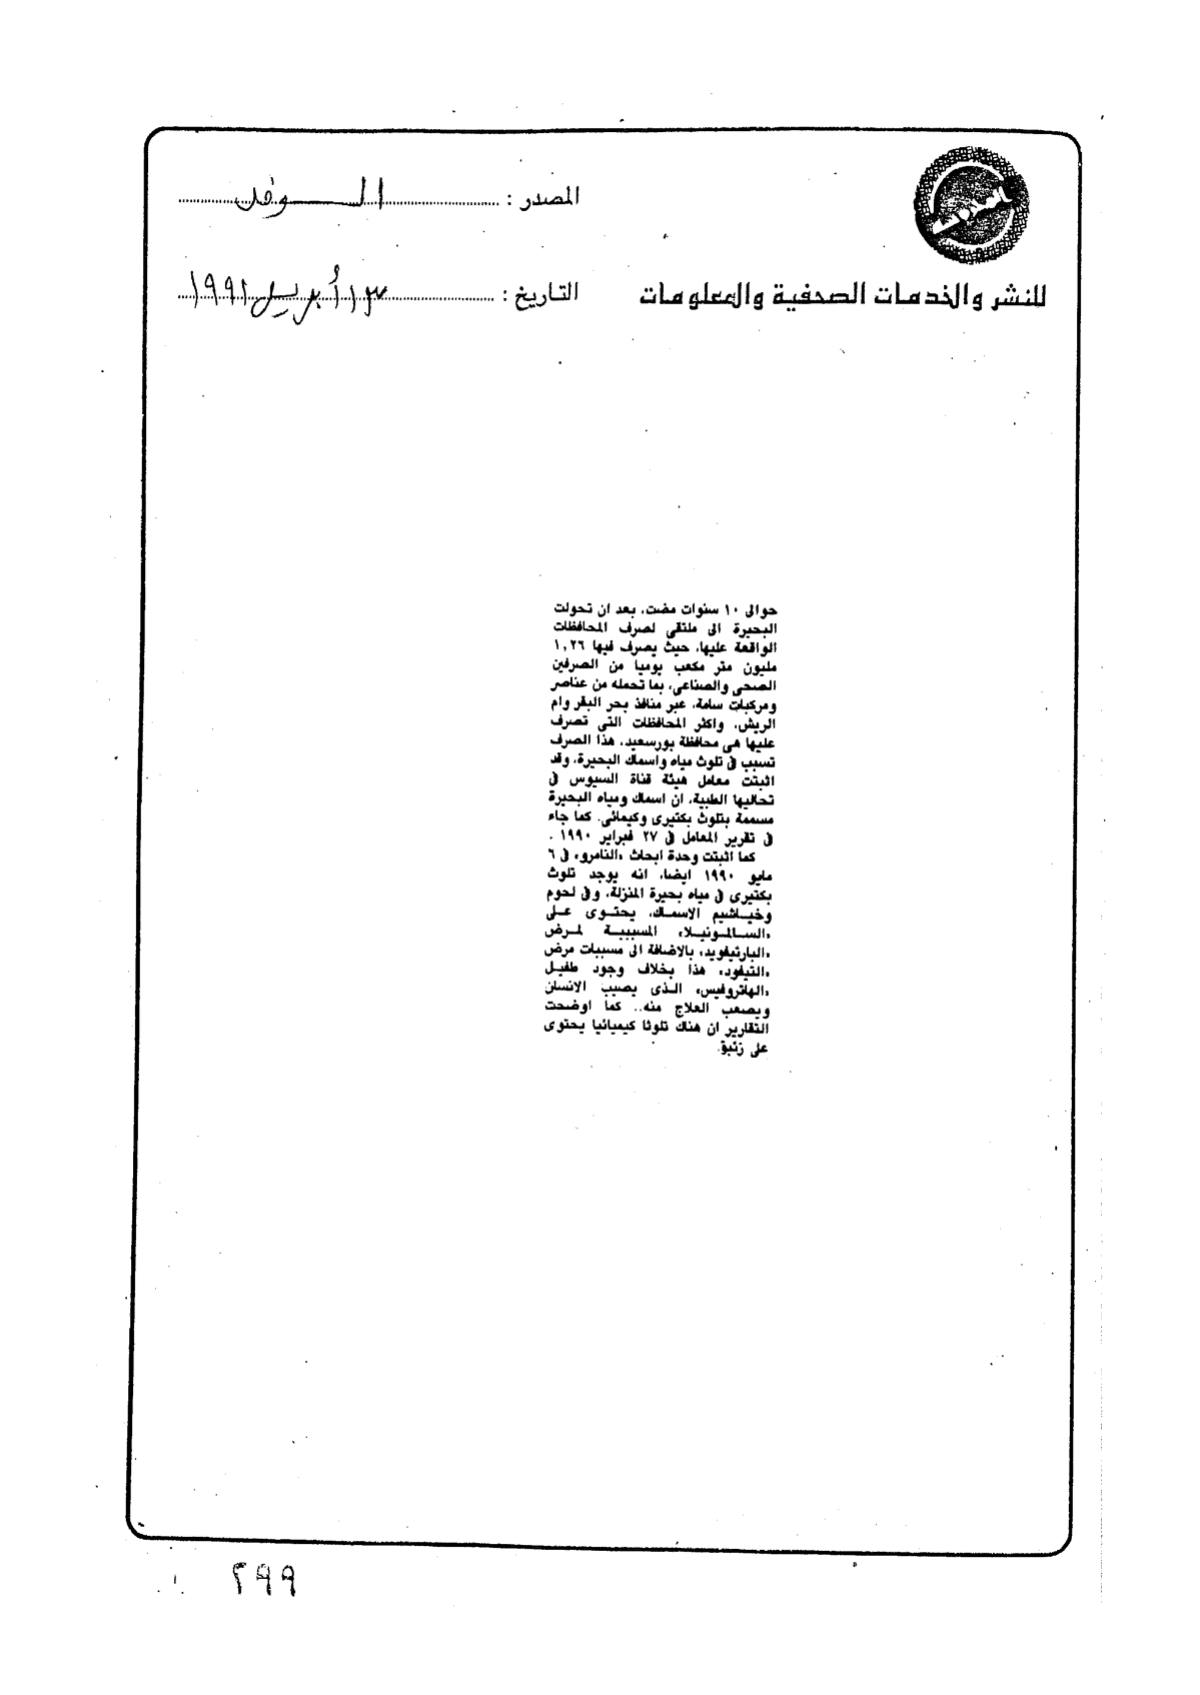 المصدر : الوفد
للنشر والخدمات الصحفية والمعلومات
التاريخ : ١٣ أبريل ١٩٩١
حوالى ١٠ سنوات مضت، بعد ان تحولت
البحيرة الى ملتقى لصرف المحافظات
الواقعة عليها، حيث يصرف فيها ١,٢٦
مليون متر مكعب يوميا من الصرفين
الصحى والصناعى، بما تحمله من عناصر
ومركبات سامة، عبر منافذ بحر البقر وام
الريش، واكثر المحافظات التى تصرف
عليها هى محافظة بورسعيد، هذا الصرف
تسبب فى تلوث مياه واسماك البحيرة، وقد
اثبتت معامل هيئة قناة السيوس فى
تحاليها الطبية، ان اسماك ومياه البحيرة
مسممة بتلوث بكتيرى وكيمائى. كما جاء
فى تقرير المعامل فى ٢٧ فبراير ١٩٩٠ .
كما اثبتت وحدة ابحاث «النامرو» فى ٦
مايو ١٩٩٠ ايضا، انه يوجد تلوث
بكتيرى فى مياه بحيرة المنزلة، وفى لحوم
وخياشيم الاسماك، يحتوى على
«السالمونيلا» المسببة لمرض
«البارتيفويد» بالاضافة الى مسببات مرض
«التيفود» هذا بخلاف وجود طفيل
«الهاتروفيس» الذى يصيب الانسان
ويصعب العلاج منه.. كما اوضحت
التقارير ان هناك تلوثا كيميائيا يحتوى
على زئبق.
٢٩٩